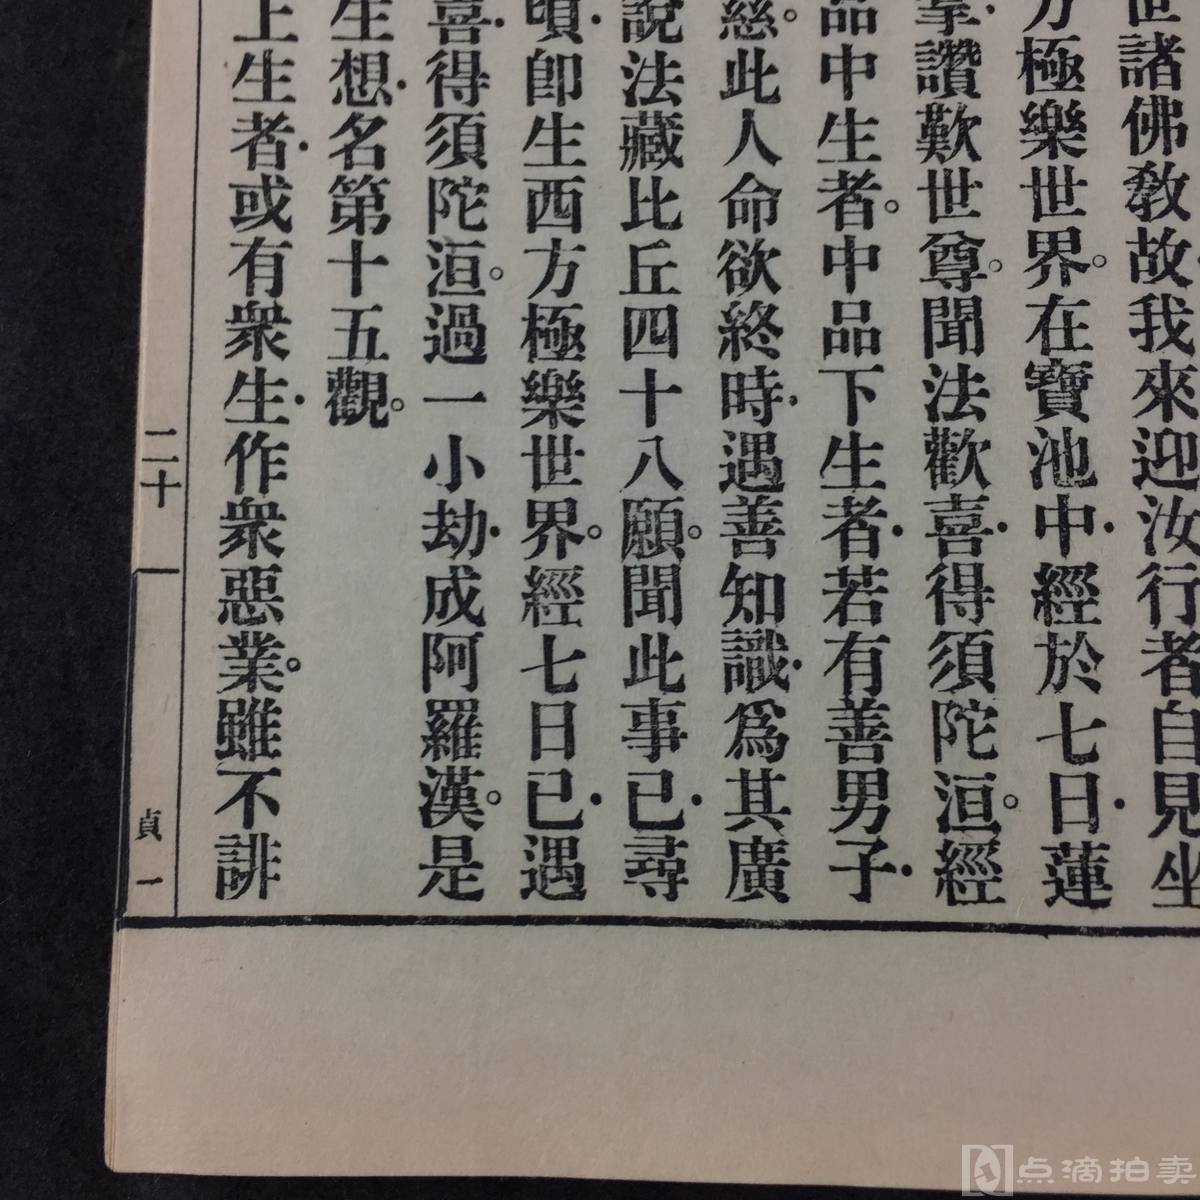 世諸佛教故我來迎汝行者自見坐
方極樂世界。在寶池中.經於七日.蓮
掌讚歎世尊。聞法歡喜.得須陀洹。經
品中生者。中品下生者.若有善男子.
慈。此人命欲終時.遇善知識.爲其廣
說法藏比丘四十八願。聞此事已.尋
頃.卽生西方極樂世界。經七日已.遇
喜.得須陀洹。過一小劫.成阿羅漢。是
生想.名第十五觀。
上生者.或有衆生.作衆惡業。雖不誹
二十一
貞一
点滴拍卖